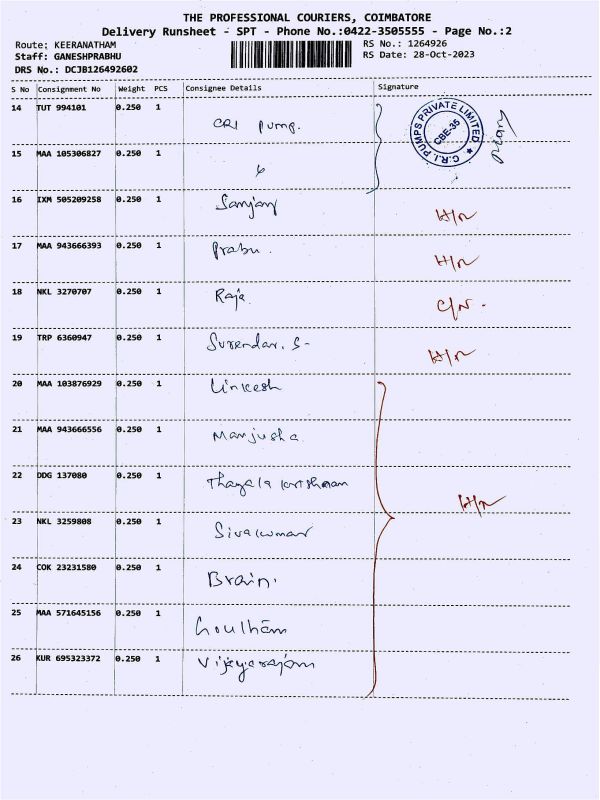 THE PROFESSIONAL COURIERS, COIMBATORE
Delivery Runsheet - SPT - Phone No.:0422-3505555 - Page No.:2
Route: KEERANATHAM RS No.: 1264926
Staff: GANESHPRABHU RS Date: 28-Oct-2023
DRS No.: DCJB126492602
S No Consignment No Weight PCS Consignee Details Signature
14 TUT 994101 0.250 1 CRI Pump. C.R.I. PUMPS PRIVATE LIMITED CBE-35
15 MAA 105306827 0.250 1
16 IXM 505209258 0.250 1 Sanjay H/R
17 MAA 943666393 0.250 1 Prabu. H/R
18 NKL 3270707 0.250 1 Raja C/N.
19 TRP 6360947 0.250 1 Surendar. S- H/R
20 MAA 103876929 0.250 1
21 MAA 943666556 0.250 1 Manjusha
22 DDG 137080 0.250 1 H/R
23 NKL 3259808 0.250 1 Sivakumar
24 COK 23231580 0.250 1 Brain.
25 MAA 571645156 0.250 1
26 KUR 695323372 0.250 1 Vijayarajam